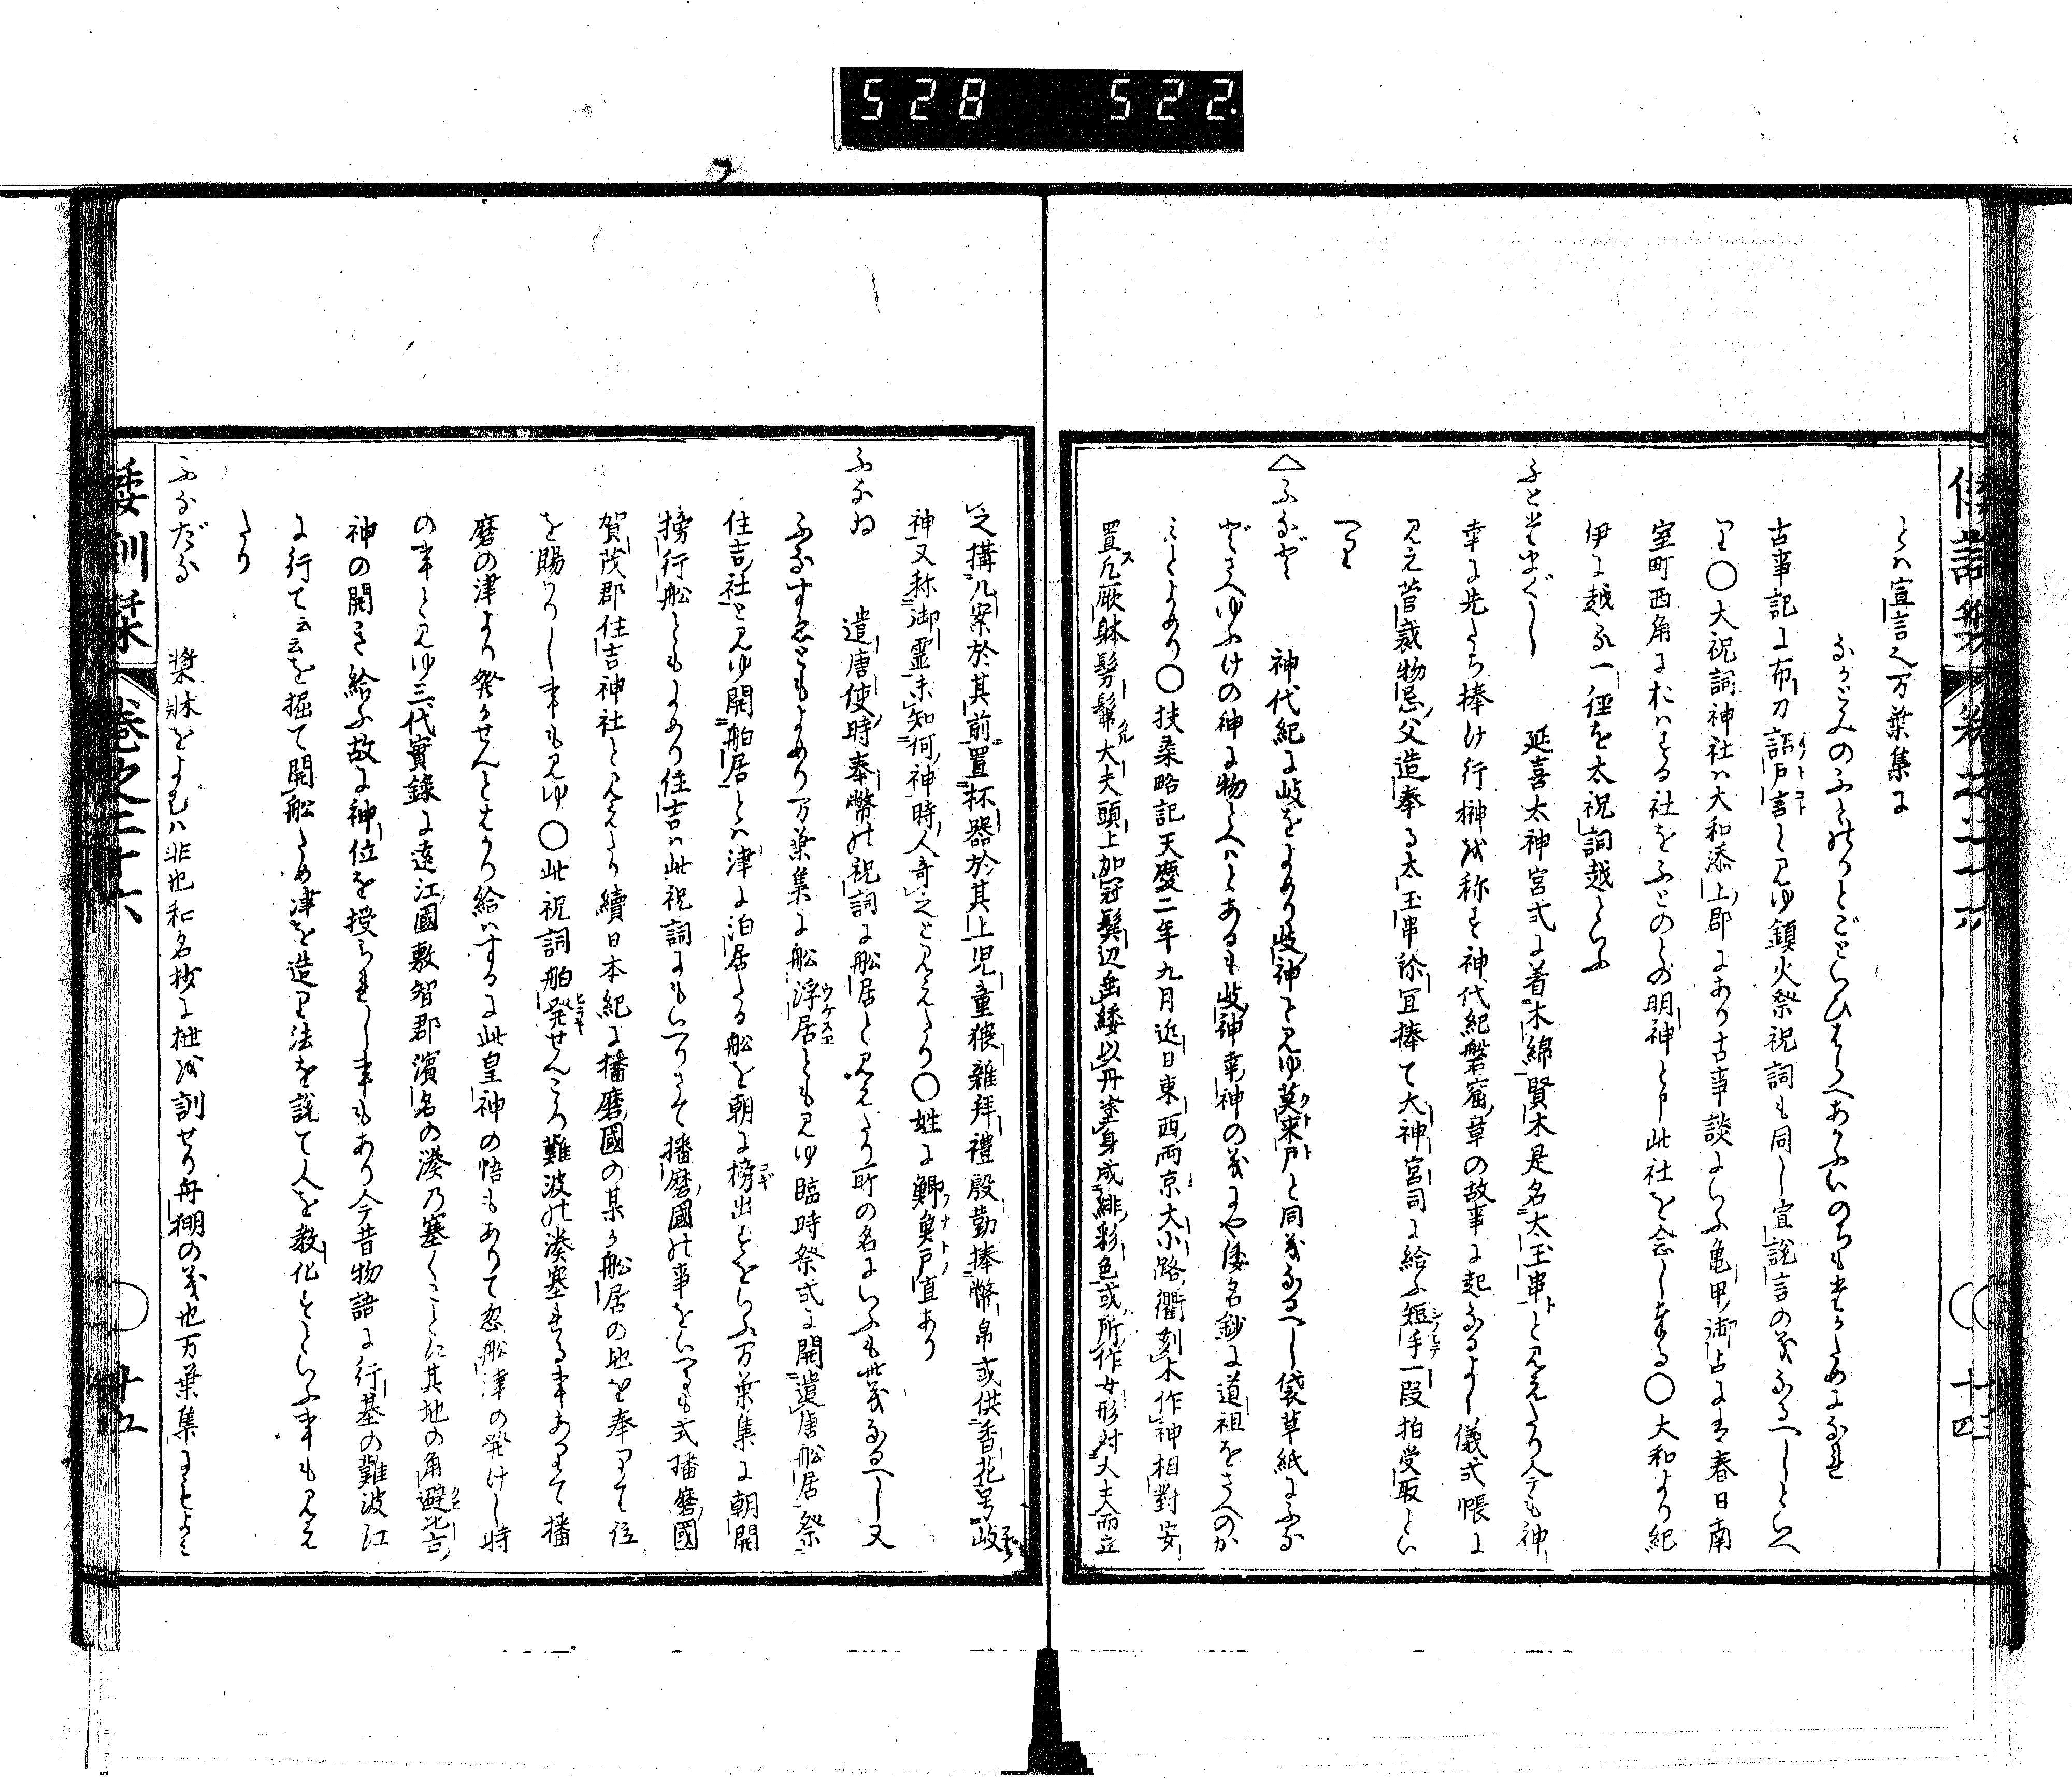 528 522
倭訓栞 卷之二十六 十四
とハ宣言也万葉集に
なかとみのふとのりとごといひはらへあかふいのちもたかためになれ
古事記に布刀詔戸言と見ゆ鎮火祭祝詞も同し宣説言の義なるへしといへ
り〇大祝詞神社ハ大和添上郡にあり古事談にいふ亀甲御占にハ春日南
室町西角におハする社をふとのとの明神と申此社を念し奉る〇大和より紀
伊に越る一徑を太祝詞越といふ
ふとたまぐし 延喜太神宮式に着木綿賢木是名太玉串と見えたり今も神
幸に先たち捧け行榊を称す神代紀磐窟章の故事に起るなるよし儀式帳に
見え菅裁物忌父造奉る太玉串祢宜捧て大神宮司に給ふ短手一段拍受取とい
へり
△ふなど 神代紀に岐をよめり岐神と見ゆ莫来戸と同義なるへし袋草紙にふな
どさへゆふけの神に物とへハとあるも岐神幸神の義にや倭名鈔に道祖をさへのか
ミとよめり〇扶桑略記天慶二年九月近日東西両京大小路衢刻木作神相對安
置凡厥躰髣髴大夫頭上加冠鬢辺垂緌以丹塗身成緋彩色或所作女形対大夫而立
之搆几案於其前置杯器於其上児童猥雑拝禮殷勤捧幣帛或供香花号岐
神又称御霊未知何神時人奇之と見えたり〇姓に鯽魚戸直あり
ふなゐ 遣唐使時奉幣の祝詞に舩居と見えたり所の名にいふも此義なるへし又
ふなすゑともよめり万葉集に舩浮居とも見ゆ臨時祭式に開遣唐舩居祭
住吉社と見ゆ開舶居とハ津に泊居たる舩を朝に榜出すをいふ万葉集に朝開
榜行舩ともよめり住吉ハ此祝詞にもいへりさて播磨國の事をいへるも式播磨國
賀茂郡住吉神社と見えたり續日本紀に播磨國の某か舩居の地を奉りて位
を賜りし事も見ゆ〇此祝詞舶発せんころ難波の湊塞れる事ありて播
磨の津より発かせんとはかり給ハする此皇神の悟もありて忽舩津の発けし時
の事と見ゆ三代實録に遠江國敷智郡濱名の湊乃塞くことに其地の角避比古
神の開き給ふ故に神位を授られし事もあり今昔物語に行基の難波江
に行て云云を掘て開舩ため津を造り法を説て人を教化すといふ事も見え
たり
ふなだな 槳牀をよむハ非也和名抄に枻を訓せり舟棚の義也万葉集にもよミ
倭訓栞 卷之二十六 十五